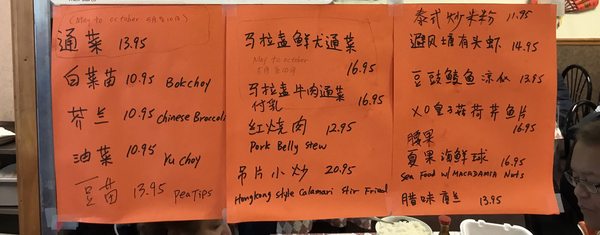 (May to october 5月-10月)
通菜 13.95
白菜苗 10.95 Bokchoy
芥兰 10.95 Chinese Broccoli
油菜 10.95 Yu choy
豆苗 13.95 Pea Tips
马拉盏鲜尤通菜
May to october
5月-10月
16.95
马拉盏牛肉通菜
付乳 16.95
红烧肉 12.95
Pork Belly Stew
吊片小炒 20.95
Hongkong Style Calamari Stir Fried
泰式炒米粉 11.95
避风塘有头虾 14.95
豆豉鲮鱼凉瓜 13.95
XO皇子菇荷芹鱼片
16.95
腰果
夏果海鲜球 16.95
Sea Food w/ MACADAMIA Nuts
腊味 13.95